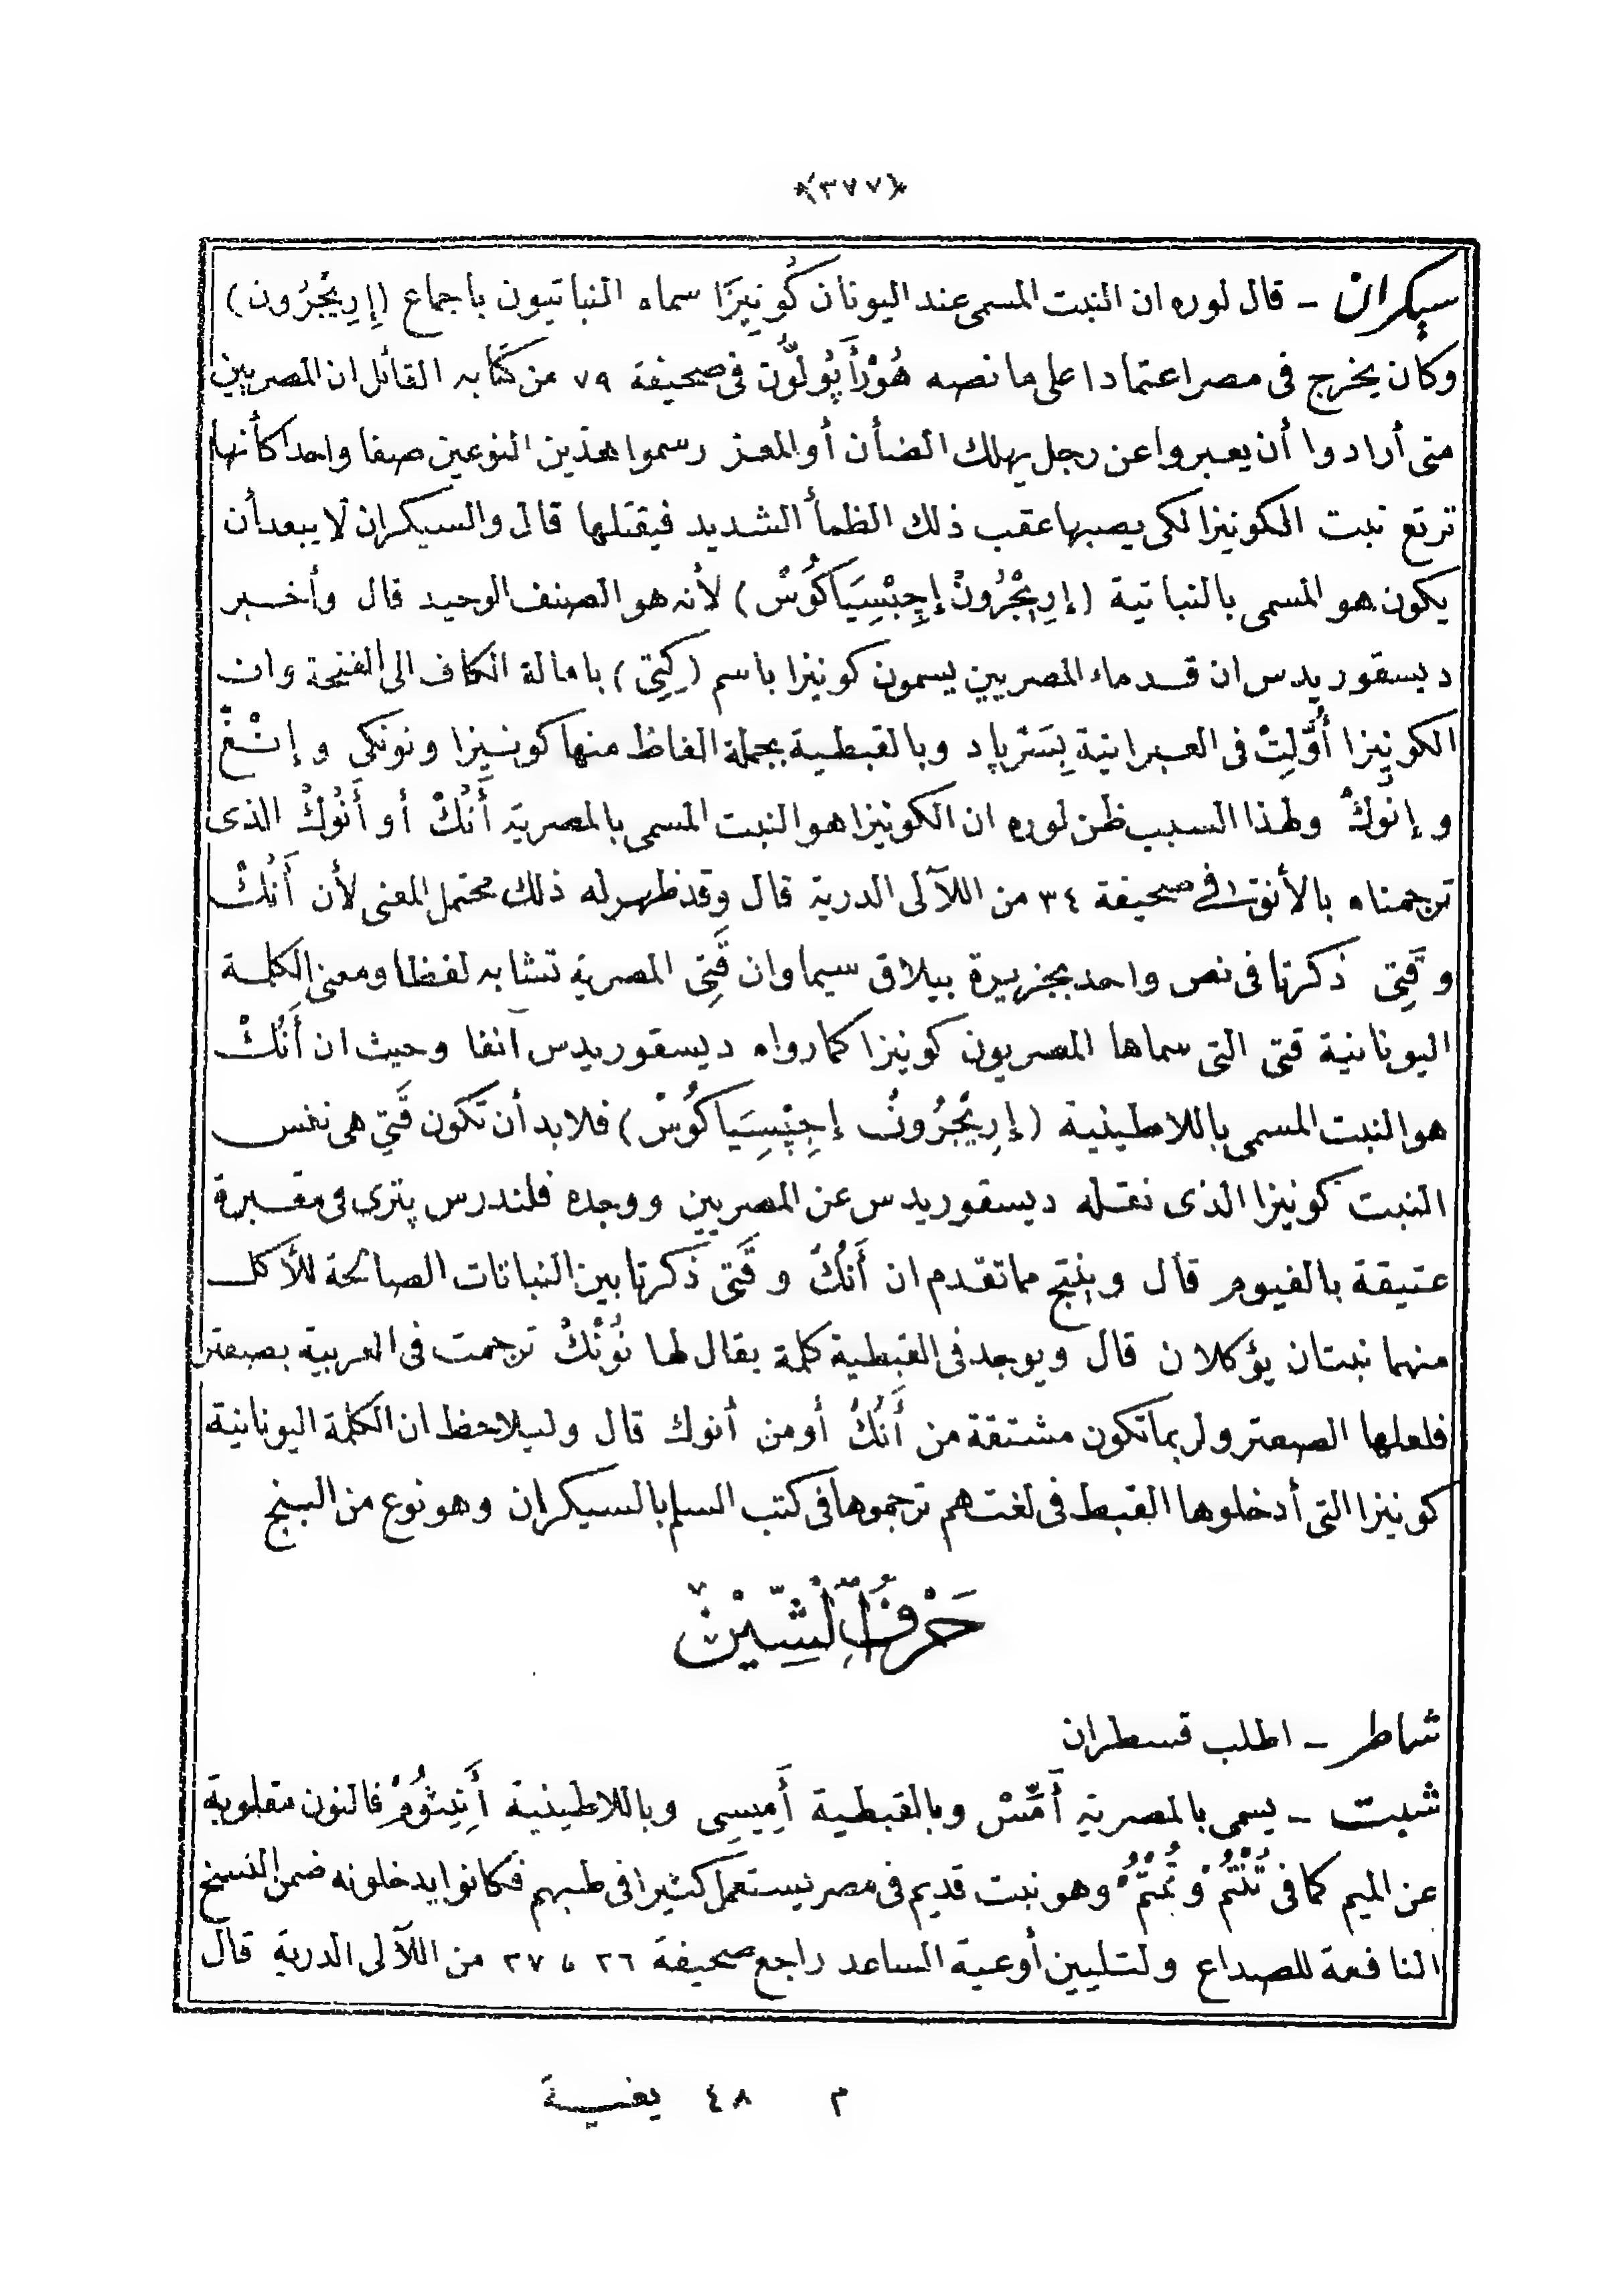 ﴿٣٧٧﴾
سيكران – قال لوره ان النبت المسمى عند اليونان كُونِيزَا سماه النباتيون باجماع (إِرِيْجُرُون)
وكان يخرج فى مصر اعتمادا على ما نصه هُوْرَأَپُولُّون فى صحيفة ٧٩ من كتابه القائل ان المصريين
متى أرادوا أن يعبروا عن رجل يهلك الضأن أو المعز رسموا هذين النوعين صفا واحدا كأنها
ترتع نبت الكونيزا لكى يصيبها عقب ذلك الظمأ الشديد فيقتلها قال والسيكران لا يبعد أن
يكون هو المسمى بالنباتية (إِرِيْجْرُونْ إِجِبْسِيَاكُوسْ) لأنه هو الصنف الوحيد قال وأخبر
ديسقوريدس ان قدماء المصريين يسمون كونيزا باسم (كِيَتِى) بامالة الكاف الى الفتحة وان
الكونيزا أُوِّلِتْ فى العبرانية بِسَتْرپاد وبالقبطية بجملة الفاظ منها كونيزا ونونكى و إنْغْ
و إنُّوكْ ولهذا السبب ظن لوره ان الكونيزا هو النبت المسمى بالمصرية أَنُكْ أو أَنُوكْ الذى
ترجمناه بالأنوق فى صحيفة ٣٤ من اللآلى الدرية قال وقد ظهر له ذلك محتمل المعنى لأن أَنُكْ
وقَتِى ذكرتا فى نص واحد بجزيرة بيلاق سيما وان قَتِى المصرية تشابه لفظا ومعنى الكلمة
اليونانية قتى التى سماها المصريون كونيزا كما رواه ديسقوريدس آنفا وحيث ان أَنُكْ
هو النبت المسمى باللاطينية (إِرِيْجُرُونْ إِجِپْسِيَاكُوسْ) فلا بد أن تكون قَتِى هى نفس
النبت كونيزا الذى نقله ديسقوريدس عن المصريين ووجده فلندرس پترى فى مقبرة
عتيقة بالفيوم قال وينتج مما تقدم ان أَنُكْ و قَتِى ذكرتا بين النباتات الصالحة للأكل
منهما نبتان يؤكلان قال ويوجد فى القبطية كلمة يقال لها نُوْنْكْ ترجمت فى العربية بصعتر
فلعلها الصعتر ولربما تكون مشتقة من أَنُكْ أو من أنوك قال وليلاحظ ان الكلمة اليونانية
كونيزا التى أدخلوها القبط فى لغتهم ترجموها فى كتب السلم بالسيكران وهو نوع من البنج
حَرْفُ الشِّيْنْ
شاطر – اطلب قسطران
شبت – يسمى بالمصرية أَمِّسْ وبالقبطية أَمِيسِى وباللاطينية أَنِيثُومْ فالنون مقلوبة
عن الميم كما فى تُنْتُمْ و تُمْتُمْ وهو نبت قديم فى مصر يستعمل كثيرا فى طبهم فكانوا يدخلونه ضمن النسخ
النافعة للصداع ولتليين أوعية الساعد راجع صحيفة ٢٦ ٥ ٢٧ من اللآلى الدرية قال
م ٤٨ بغية